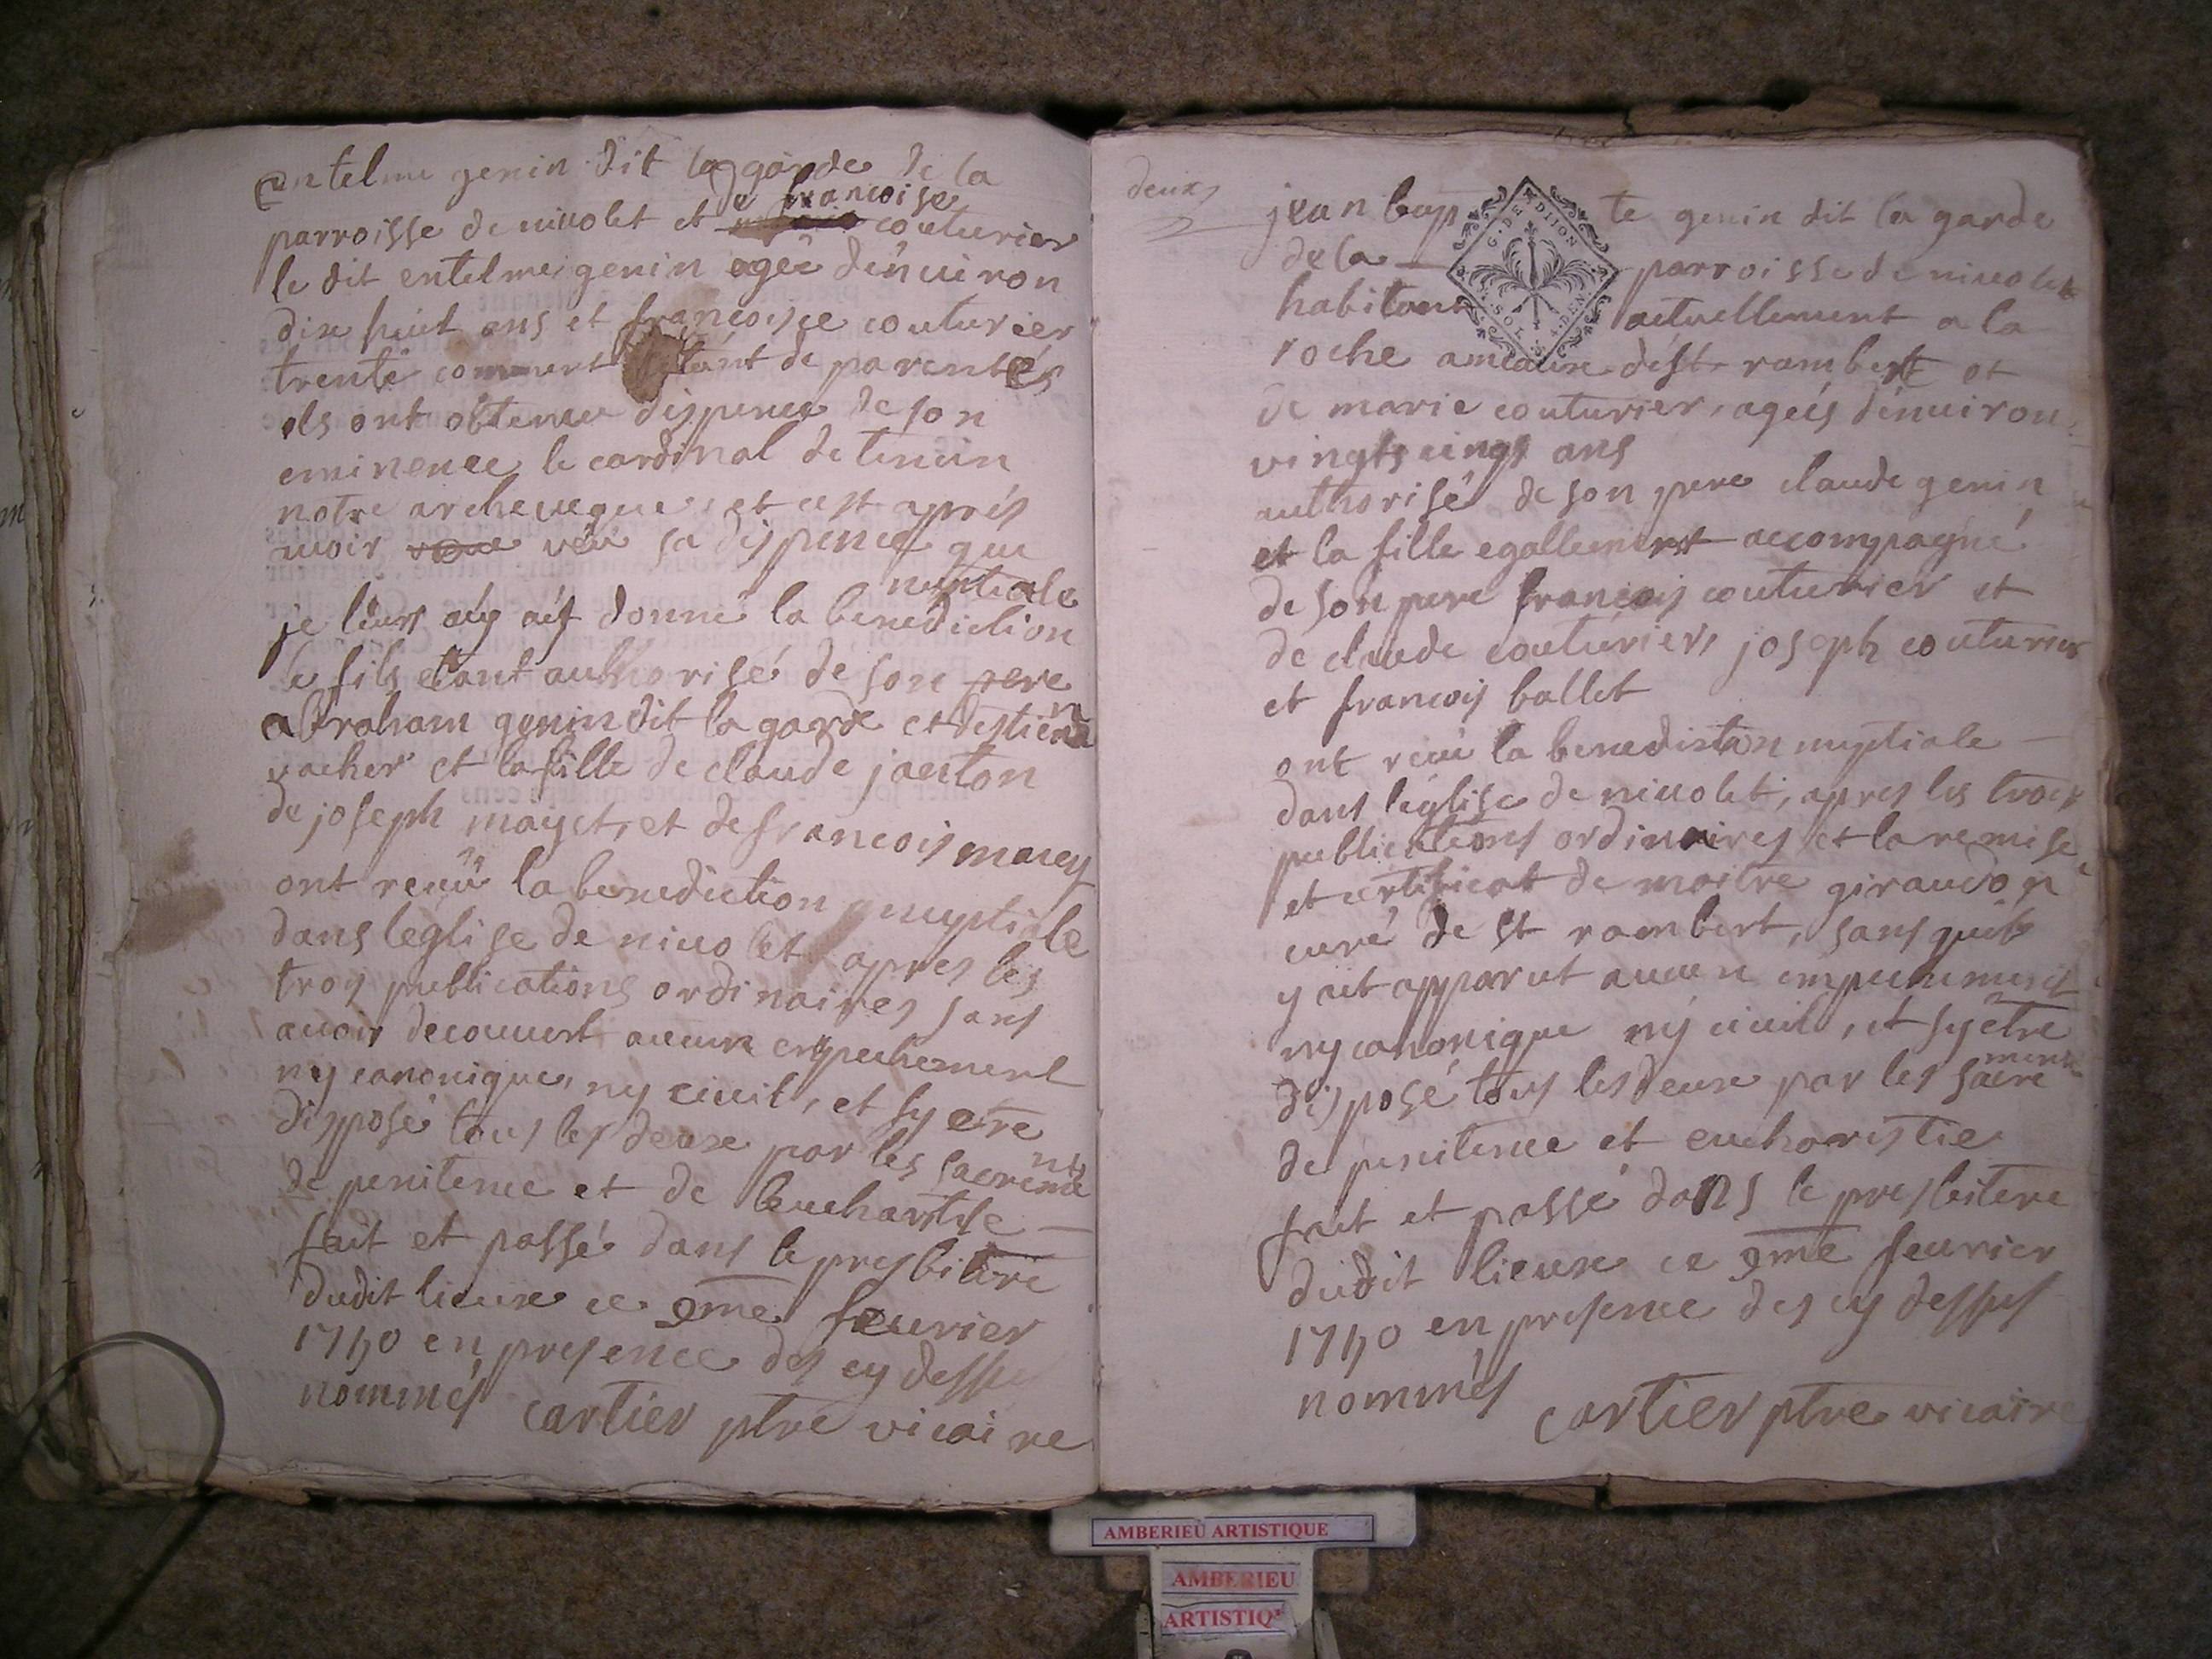 entelme genin dit la garde de la
parroisse de nivolet et de francoise couturier
le dit entelme genin agée d'environ
dix huit ans et francoise couturier
trente comment etant de parentés
ils ont obtenue dispence de son
eminence le cardinal de tencin
notre archeveque, et cest aprés
avoir veu sa dispence que
nuptiale
je leurs aÿ donné la benediction
le fils etant authorisé de son pere
abraham genin dit la garde et destienne
vacher et la fille de claude janton
de joseph mayet, et de francois marey
ont recüû la benediction nuptiale
dans leglise de nivolet apres les
trois publications ordinaires sans
avoir decouvert aucun enpechement
ny canonique, ny civil, et sy etre
disposé tous les deux par les sacrements
de penitence et de leucharistie
fait et passé dans le presbitere
dudit lieux ce 9me fevrier
1750 en presence des cy dessus
nommés cartier ptre vicaire
deux
jean baptiste genin dit la garde
de la parroisse de nivolet
habitant actuellement a la
roche de st rambert et
de marie couturier, ageés d'environ
vingts cinqs ans
authorisé de son pere claude genin
et la fille egallement accompagné
de son pere francois couturier et
de claude couturier, joseph couturier
et francois ballet
ont recue la benediction nuptiale
dans leglise de nivolet, apres les trois
publications ordinaires et la remise
et certificat de maitre giraudon
curé de st rambert, sans quils
y ait apparut aucun empechement
ny canonique ny civil, et sy etre
disposé tous les deux par les sacrements
de penitence et eucharistie
fait et passé dans le presbitere
dudit lieux ce 9me fevrier
1750 en presence des cy dessus
nommés
cartier ptre vicaire
G. DE DIJON
SOL 4 DEN.
AMBERIEU ARTISTIQUE
AMBERIEU
ARTISTIQ